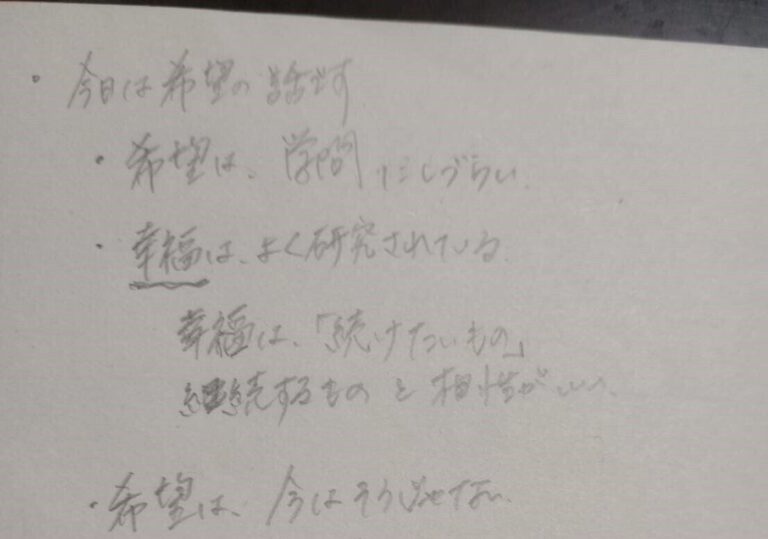 ・今日は希望の話です
・希望は、学問にしづらい。
・幸福は、よく研究されている。
幸福は、「続けたいもの」
継続するものと相性がいい。
・希望は、今はそう